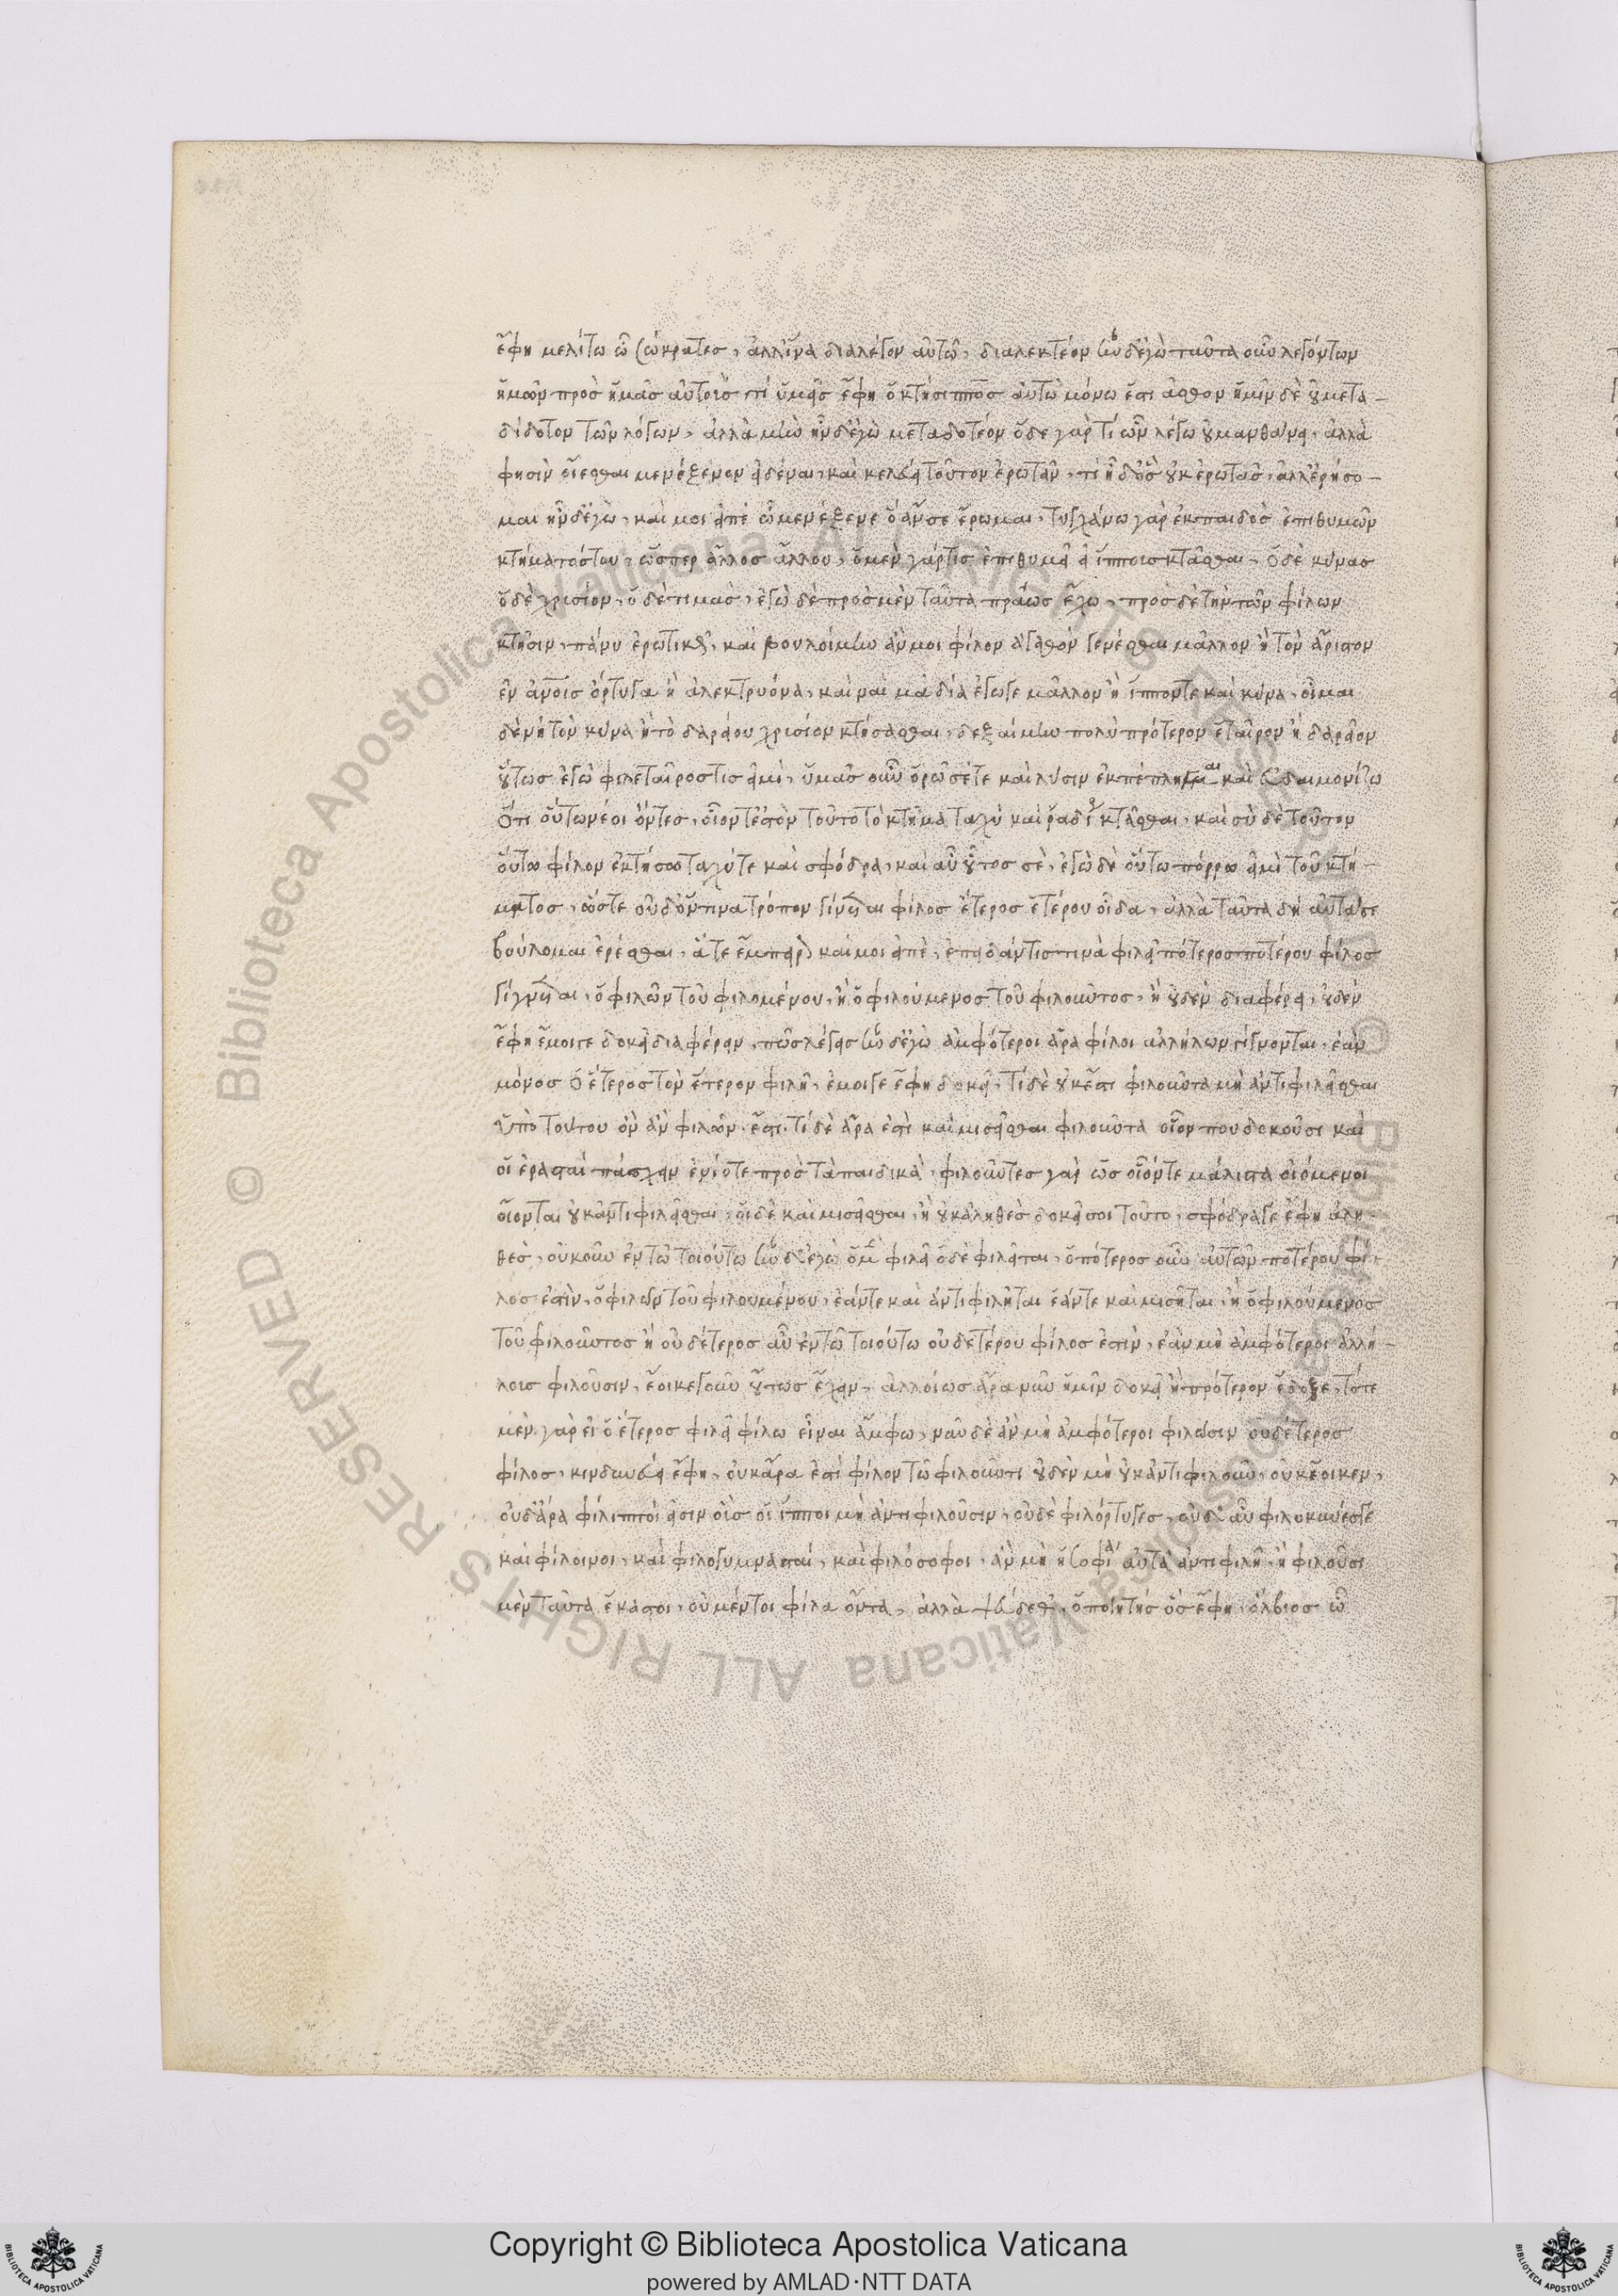 ἔφη μελέτω ὦ σώκρατες, ἀλλ' ἵνα διαλέγου αὐτῶ, διαλεκτέον ἦν δ' ἐγὼ ταῦτα οὖν λεγόντων
ἡμῶν πρὸς ἡμᾶς αὐτοὺς τί ὑμεῖς ἔφη ὁ κτήσιππος αὐτὼ μόνω ἐστιᾶσθον ἡμῖν δὲ οὐ μετα-
δίδοτον τῶν λόγων, ἀλλὰ μὴν ἦν δ' ἐγὼ μεταδοτέον ὅδε γάρ τί ὧν λέγω οὐ μανθάνει, ἀλλὰ
φησὶν οἴεσθαι μενέξενον εἰδέναι, καὶ κελεύει τοῦτον ἐρωτᾶν, τί ἦ δ' ὃς οὐκ ἐρωτᾶς, ἀλλ' ἐρήσο-
μαι ἦν δ' ἐγὼ, καί μοι εἰπὲ ὦ μενέξενε ὃ ἄν σε ἔρωμαι, τυγχάνω γὰρ ἐκ παιδὸς ἐπιθυμῶν
κτήματός του, ὥσπερ ἄλλος ἄλλου, ὁ μὲν γάρ τις ἐπιθυμεῖ ἵππους κτᾶσθαι, ὁ δὲ κύνας
ὁ δὲ χρυσίον, ὁ δὲ τιμάς, ἐγὼ δὲ πρὸς μὲν ταῦτα πράως ἔχω, πρὸς δὲ τὴν τῶν φίλων
κτῆσιν, πάνυ ἐρωτικῶς, καὶ βουλοίμην ἄν μοι φίλον ἀγαθὸν γενέσθαι μᾶλλον ἢ τὸν ἄριστον
ἐν ἀνοις ὄρτυγα ἢ ἀλεκτρυόνα, καὶ ναὶ μὰ δία ἔγωγε μᾶλλον ἢ ἵππον τε καὶ κύνα, οἶμαι
δὲ νὴ τὸν κύνα ἢ τὸ δαρείου χρυσίον κτήσασθαι, δεξαίμην πολὺ πρότερον ἑταῖρον ἢ δαρεῖον
οὕτως ἐγὼ φιλέταιρός τις εἰμὶ, ὑμᾶς οὖν ὁρῶ σέ τε καὶ λύσιν ἐκπέπληγμαι καὶ εὐδαιμονίζω
ὅτι οὕτω νέοι ὄντες, οἷόν τ' ἐστὸν τοῦτο τὸ κτῆμα ταχὺ καὶ ῥαδίως κτᾶσθαι, καὶ σὺ δὲ τοῦτον
οὕτω φίλον ἐκτήσω ταχύ τε καὶ σφόδρα, καὶ αὖ οὗτος σὲ, ἐγὼ δὲ οὕτω πόρρω εἰμὶ τοῦ κτή-
ματος, ὥστε οὐδ' ὅντινα τρόπον γίνεται φίλος ἕτερος ἑτέρου οἶδα, ἀλλὰ ταῦτα δὴ αὐτά σε
βούλομαι ἐρέσθαι, ἅτε ἔμπειρον καί μοι εἰπὲ, ἐπειδάν τίς τινα φιλῆ πότερος ποτέρου φίλος
γίγνεται, ὁ φιλῶν τοῦ φιλουμένου, ἢ ὁ φιλούμενος τοῦ φιλοῦντος, ἢ οὐδὲν διαφέρει, οὐδὲν
ἔφη ἔμοιγε δοκεῖ διαφέρειν, πῶς λέγεις ἦν δ' ἐγὼ ἀμφότεροι ἄρα φίλοι ἀλλήλων γίγνονται, ἐὰν
μόνος ὁ ἕτερος τὸν ἕτερον φιλῆ, ἔμοιγε ἔφη δοκεῖ, τί δὲ οὐκ ἔστι φιλοῦντα μὴ ἀντιφιλεῖσθαι
ὑπὸ τούτου ὃν ἂν φιλῶν, ἔστι, τί δὲ ἆρα ἐστὶ καὶ μισεῖσθαι φιλοῦντα οἷόν που δοκοῦσι καὶ
οἱ ἐρασταὶ πάσχειν ἐνίοτε πρὸς τὰ παιδικὰ, φιλοῦντες γὰρ ὡς οἷόν τε μάλιστα οἰόμενοι
οἴονται οὐκ ἀντιφιλεῖσθαι, οἱ δὲ καὶ μισεῖσθαι, ἢ οὐκ ἀληθὲς δοκεῖ σοι τοῦτο, σφόδρα γε ἔφη ἀλη-
θές, οὐκοῦν ἐν τῶ τοιούτω ἦν δ' ἐγὼ ὁ μὲν φιλεῖ ὁ δὲ φιλεῖται, ὁπότερος οὖν αὐτῶν ποτέρου φί-
λος ἐστὶν, ὁ φιλῶν τοῦ φιλουμένου, ἐάν τε καὶ ἀντιφιλῆται ἐάν τε καὶ μισῆται, ἢ ὁ φιλούμενος
τοῦ φιλοῦντος ἢ οὐδέτερος αὖ ἐν τῶ τοιούτω οὐδετέρου φίλος ἐστὶν, ἐὰν μὴ ἀμφότεροι ἀλλή-
λους φιλοῦσιν, ἔοικε γοῦν οὕτως ἔχειν, ἀλλοίως ἄρα νῦν ἡμῖν δοκεῖ ἢ πρότερον ἔδοξε, τότε
μὲν γὰρ εἰ ὁ ἕτερος φιλεῖ φίλω εἶναι ἄμφω, νῦν δὲ ἂν μὴ ἀμφότεροι φιλῶσιν οὐδέτερος
φίλος, κινδυνεύει ἔφη, οὐκ ἄρα ἐστὶ φίλον τῶ φιλοῦντι οὐδὲν μὴ οὐκ ἀντιφιλοῦν, οὐκ ἔοικεν,
οὐδ' ἄρα φίλιπποί εἰσιν οὓς οἱ ἵπποι μὴ ἀντιφιλοῦσιν, οὐδὲ φιλόρτυγες, οὐδ' αὖ φιλοκύνές γε
καὶ φίλοινοι, καὶ φιλογυμνασταί, καὶ φιλόσοφοι, ἂν μὴ ἡ σοφία αὐτὰ ἀντιφιλῆ, ἢ φιλοῦσι
μὲν ταῦτα ἕκαστοι, οὐ μέντοι φίλα ὄντα, ἀλλὰ ψεύδεθ' ὁ ποιητής ὃς ἔφη, ὄλβιος ὧ
Copyright © Biblioteca Apostolica Vaticana
powered by AMLAD·NTT DATA
© Biblioteca Apostolica Vaticana ALL RIGHTS RESERVED